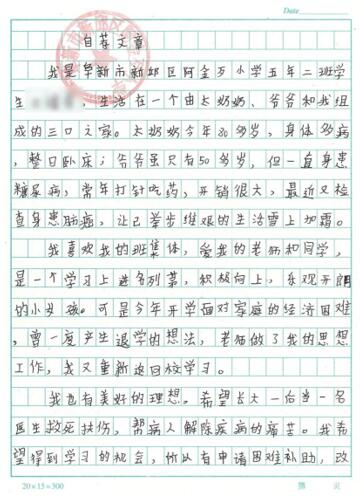 Date
自荐文章
我是阜新市新邱区阿金歹小学五年二班学
生 ，生活在一个由太奶奶、爷爷和我组
成的三口之家。太奶奶今年80多岁，身体多病
，整日卧床；爷爷虽只有50多岁，但一直身患
糖尿病，常年打针吃药，开销很大，最近又检
查身患肺癌，让已举步维艰的生活雪上加霜。
我喜欢我的班集体，爱我的老师和同学，
是一个学习上进名列 ，积极向上，乐观开朗
的小女孩。可是今年开学面对家庭的经济困难
，曾一度产生退学的想法，老师做了我的思想
工作，我又重新返回校学习。
我也有美好的理想。希望长大一后当一名
医生救死扶伤，帮病人解除疾病的痛苦。我希
望得到学习的机会，所以有申请困难补助，改
20×15=300
第 页